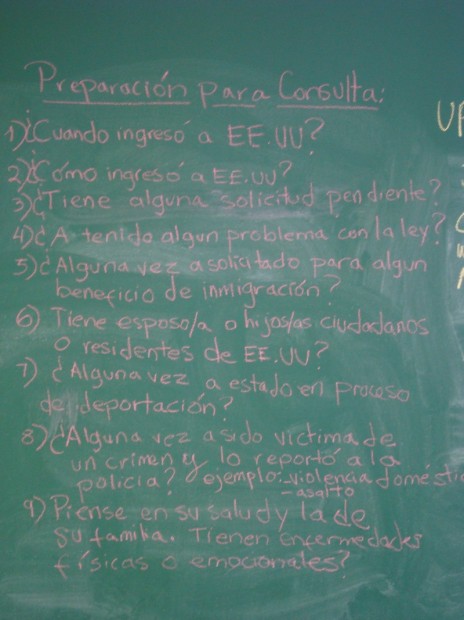 Preparación para Consulta:
1) ¿Cuando ingresó a EE.UU?
2) ¿Cómo ingresó a EE.UU?
3) ¿Tiene alguna solicitud pendiente?
4) ¿A tenido algun problema con la ley?
5) ¿Alguna vez a solicitado para algun
beneficio de inmigración?
6) Tiene esposo/a o hijos/as ciudadanos
o residentes de EE.UU?
7) ¿Alguna vez a estado en proceso
de deportación?
8) ¿Alguna vez a sido victima de
un crimen y lo reportó a la
policia? ejemplo: -violencia domésti
-asalto
9) Piense en su salud y la de
su familia. Tienen enfermedades
físicas o emocionales?